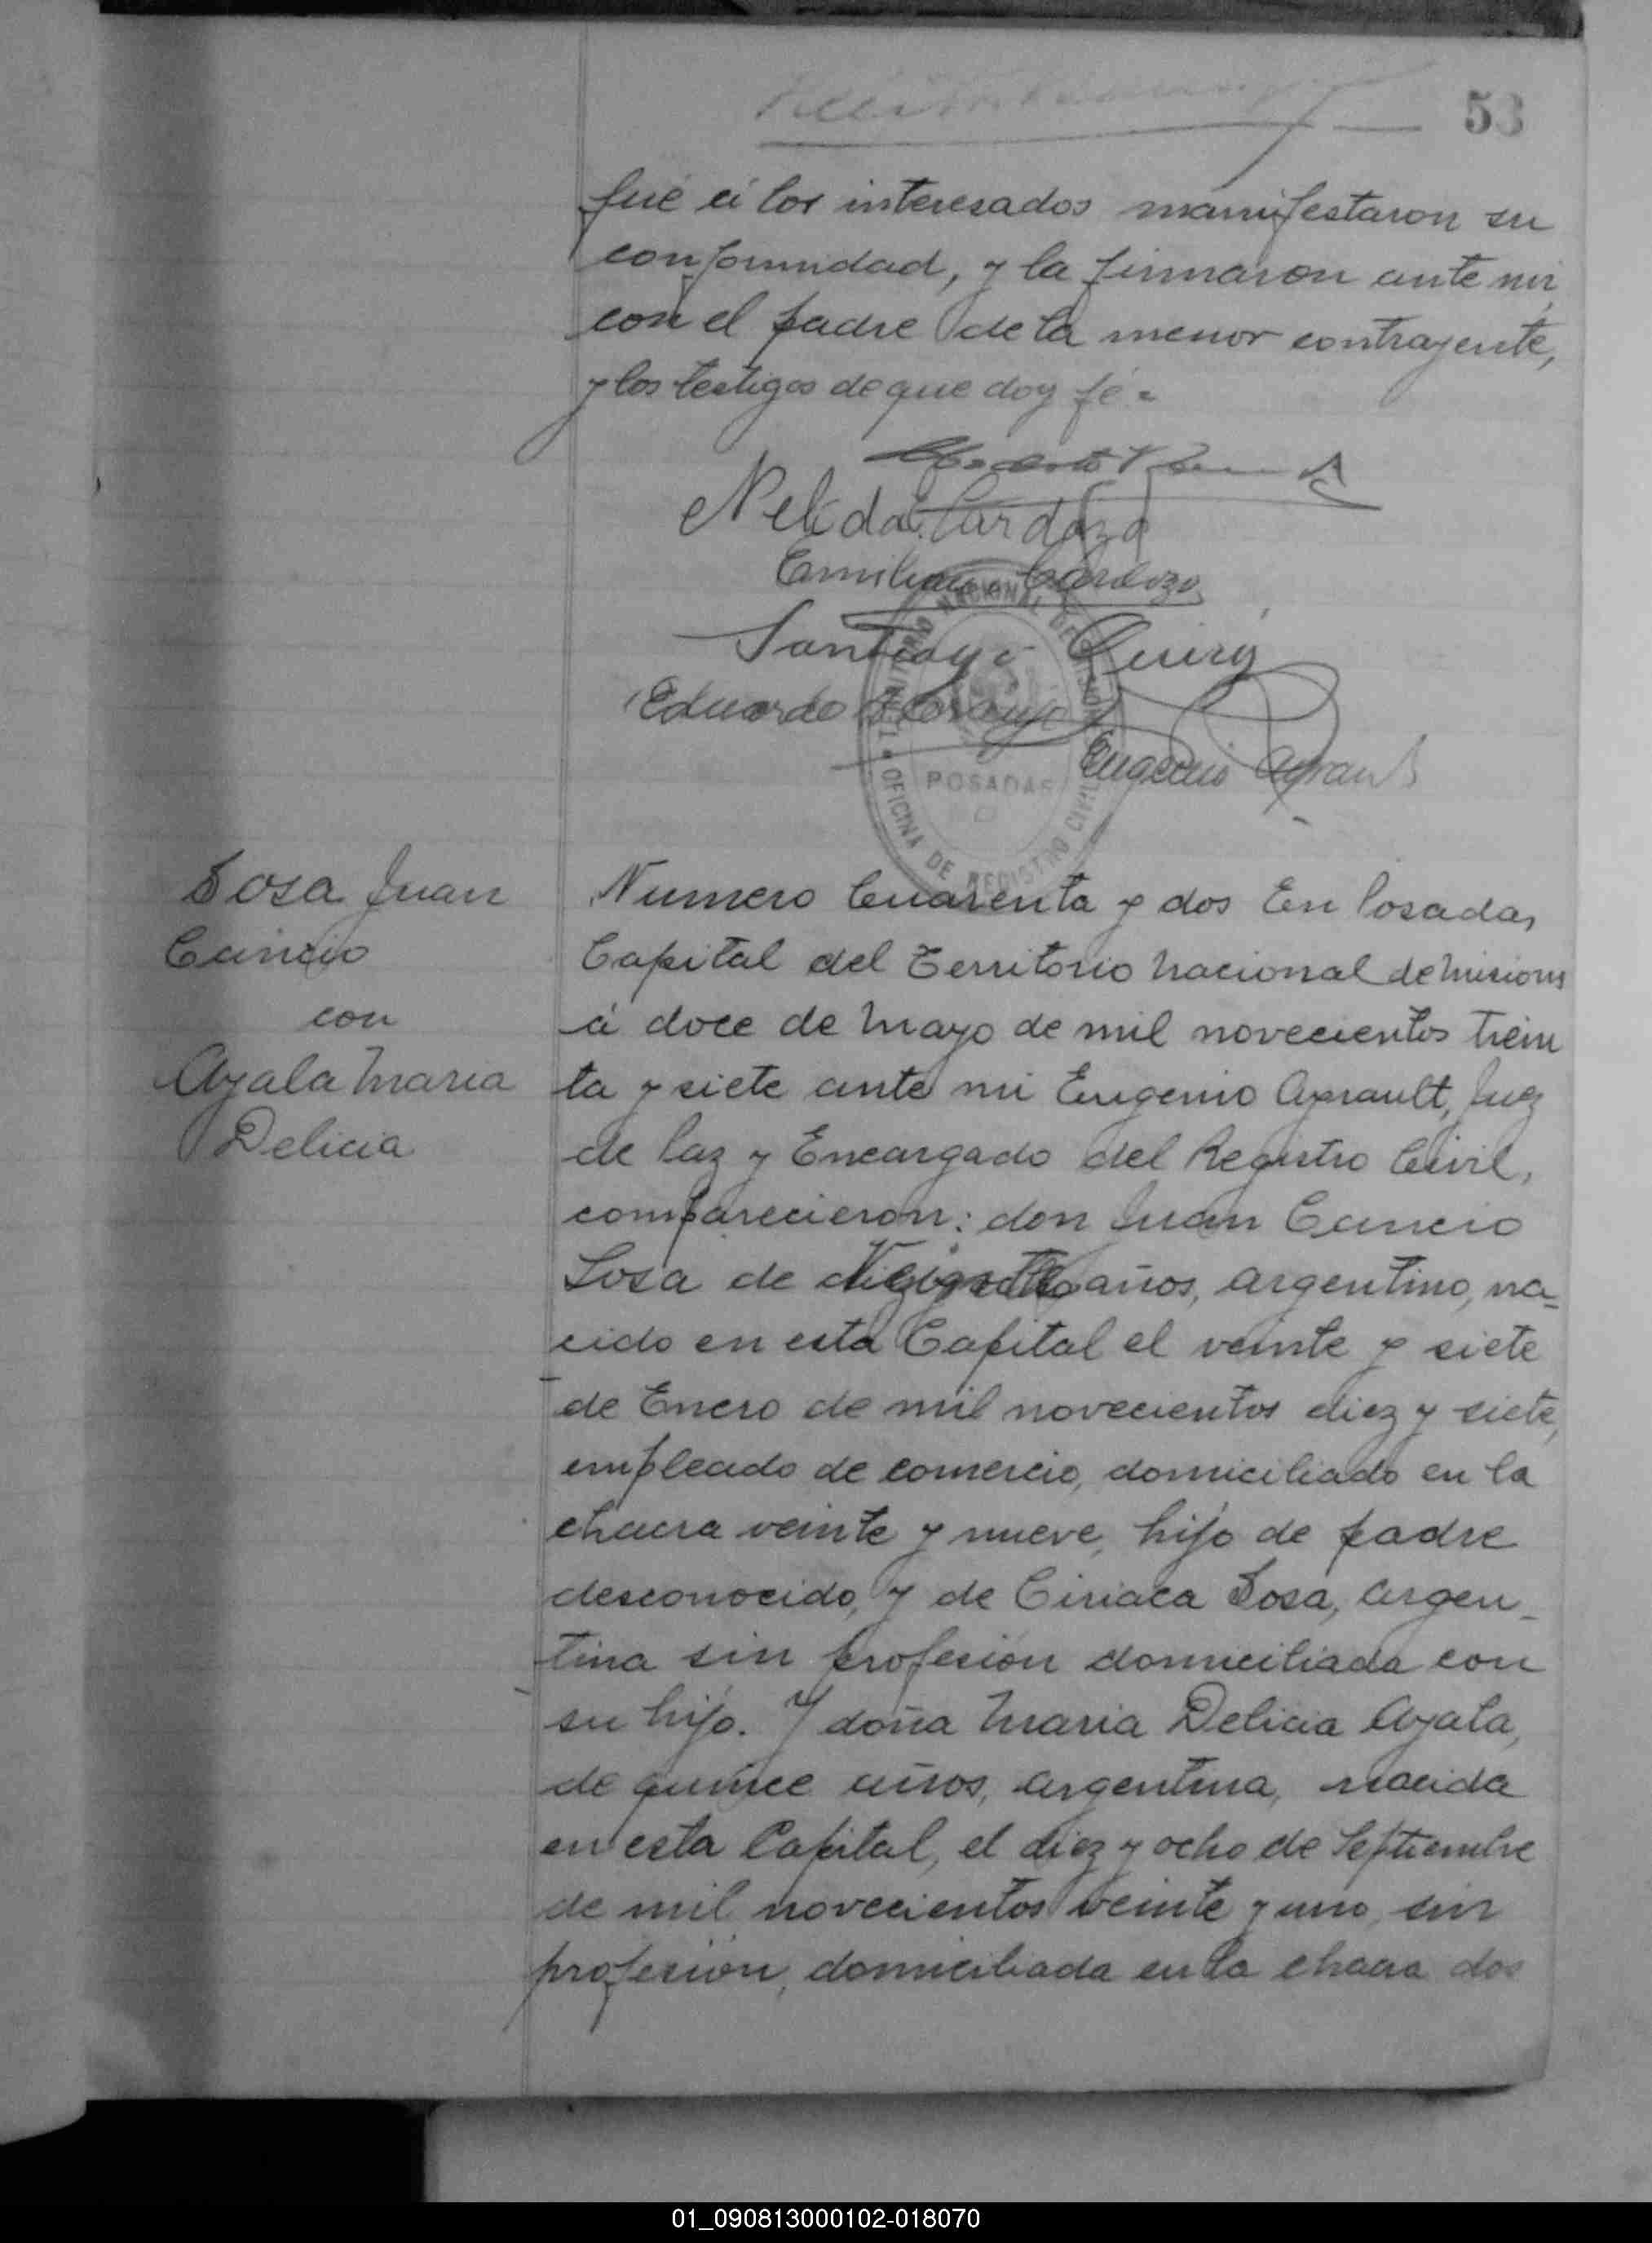 53
fué á los interesados manifestaron su
conformidad, y la firmaron ante mi
con el padre de la menor contrayente,
y los testigos de que doy fé=
Nelida Cardozo
Emiliano Cardozo
Santiago
Eduardo
Eugenio Ayrault
TERRITORIO NACIONAL DE MISIONES
POSADAS
OFICINA DE REGISTRO CIVIL
Sosa Juan
Cancio
con
Ayala Maria
Delicia
Numero Cuarenta y dos En Posadas,
Capital del Territorio Nacional de Misiones
á doce de Mayo de mil novecientos trein
ta y siete ante mi Eugenio Ayrault, Juez
de Paz y Encargado del Registro Civil,
comparecieron: don Juan Cancio
Sosa de años, argentino, na-
cido en esta Capital el veinte y siete
de Enero de mil novecientos diez y siete,
empleado de comercio, domiciliado en la
chacra veinte y nueve, hijo de padre
desconocido, y de Ciriaca Sosa, argen-
tina sin profesión domiciliada con
su hijo. Y doña Maria Delicia Ayala,
de quince años, argentina, nacida
en esta Capital, el diez y ocho de Septiembre
de mil novecientos veinte y uno, sin
profesión, domiciliada en la chacra dos
01_090813000102-018070